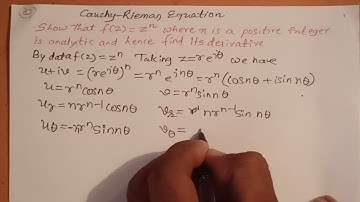 32
Cauchy-Rieman Equation
Show that f(z)=zⁿ where n is a positive integer
is analytic and hence find its derivative
By data f(z)=zⁿ Taking z=re^{iθ} we have
u+iv = (re^{iθ})ⁿ = rⁿe^{inθ} = rⁿ(cosnθ+isinnθ)
u=rⁿcosnθ v=rⁿsinnθ
u_r=nrⁿ⁻¹cosnθ v_r= nrⁿ⁻¹sin nθ
u_θ=-nrⁿsinnθ v_θ=